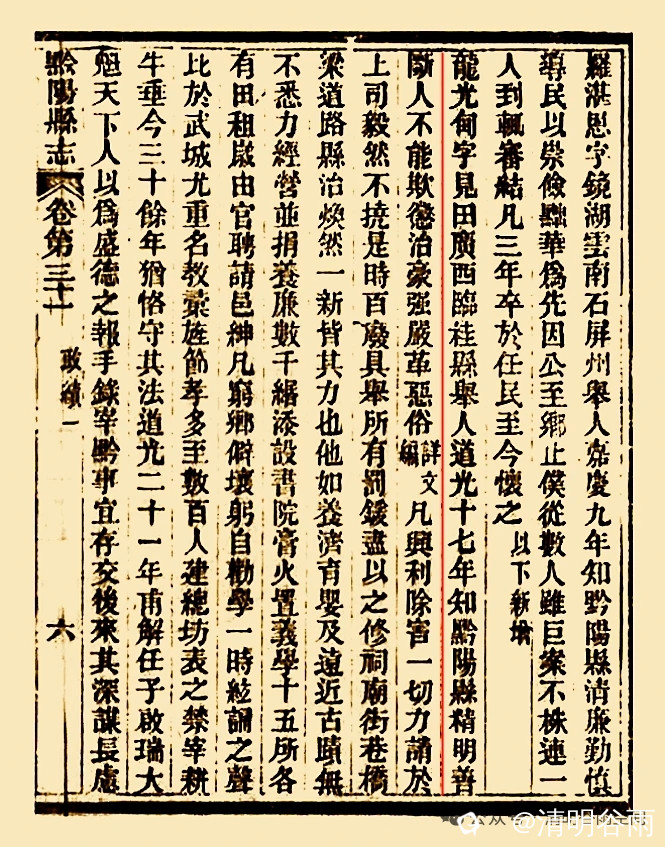 羅湛恩字鏡湖雲南石屏州舉人嘉慶九年知黔陽縣清廉勤慎
導民以崇儉黜華爲先因公至鄉止僕從數人雖巨案不株連一
人到輒審結凡三年卒於任民至今懷之以下新增
龍光甸字見田廣西臨桂縣舉人道光十七年知黔陽縣精明善
斷人不能欺懲治豪强嚴革惡俗詳文編凡興利除害一切力請於
上司毅然不撓是時百廢具舉所有罰鍰盡以之修祠廟街巷橋
梁道路縣治煥然一新皆其力也他如養濟育嬰及遠近古蹟無
不悉力經營並捐養廉數千緡添設書院膏火置義學十五所各
有田租嵗由官聘請邑紳凡窮鄉僻壤躬自勸學一時絃誦之聲
比於武城尤重名教彚旌節孝多至數百人建總坊表之禁宰耕
牛垂今三十餘年猶恪守其法道光二十一年甫解任子啟瑞大
魁天下人以爲盛德之報手錄宰黔事宜存交後來其深謀長慮
黔陽縣志 卷第三十一 政績一 六
@清明谷雨